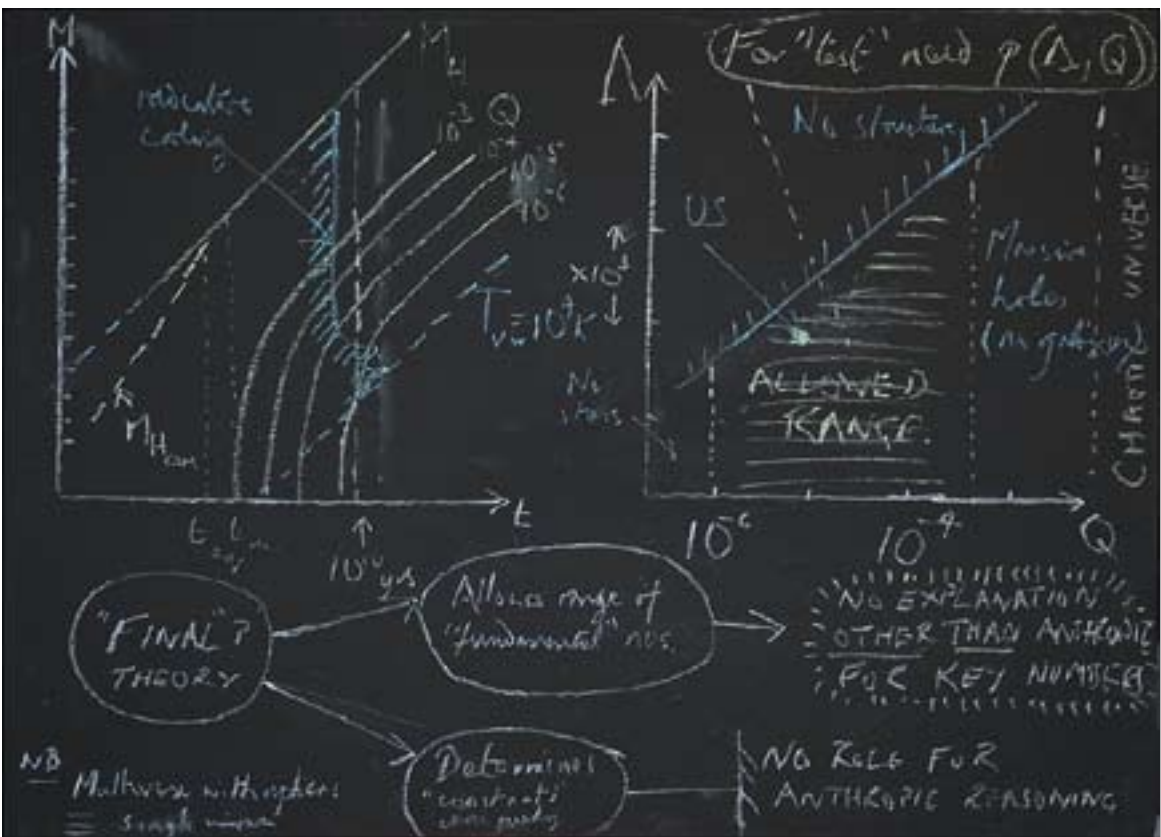 M
M_H
radiative
cooling
Q
10⁻³
10⁻⁴
10⁻⁵
10⁻⁶
T_v=10⁴K
M_H com
t
10¹⁰ yrs
For "test" need p(Λ, Q)
Λ
No structure
US
×10³
No
stars
Massive
holes
(no galaxies)
CHAOTIC UNIVERSE
ALLOWED
RANGE.
10⁻⁶
10⁻⁴
Q
"FINAL"?
THEORY
Allows range of
"fundamental" nos.
NO EXPLANATION
OTHER THAN ANTHROPIC
FOR KEY NUMBERS
Determines
"constants"
NO ROLE FOR
ANTHROPIC REASONING
NB
Multiverse with
≡ single